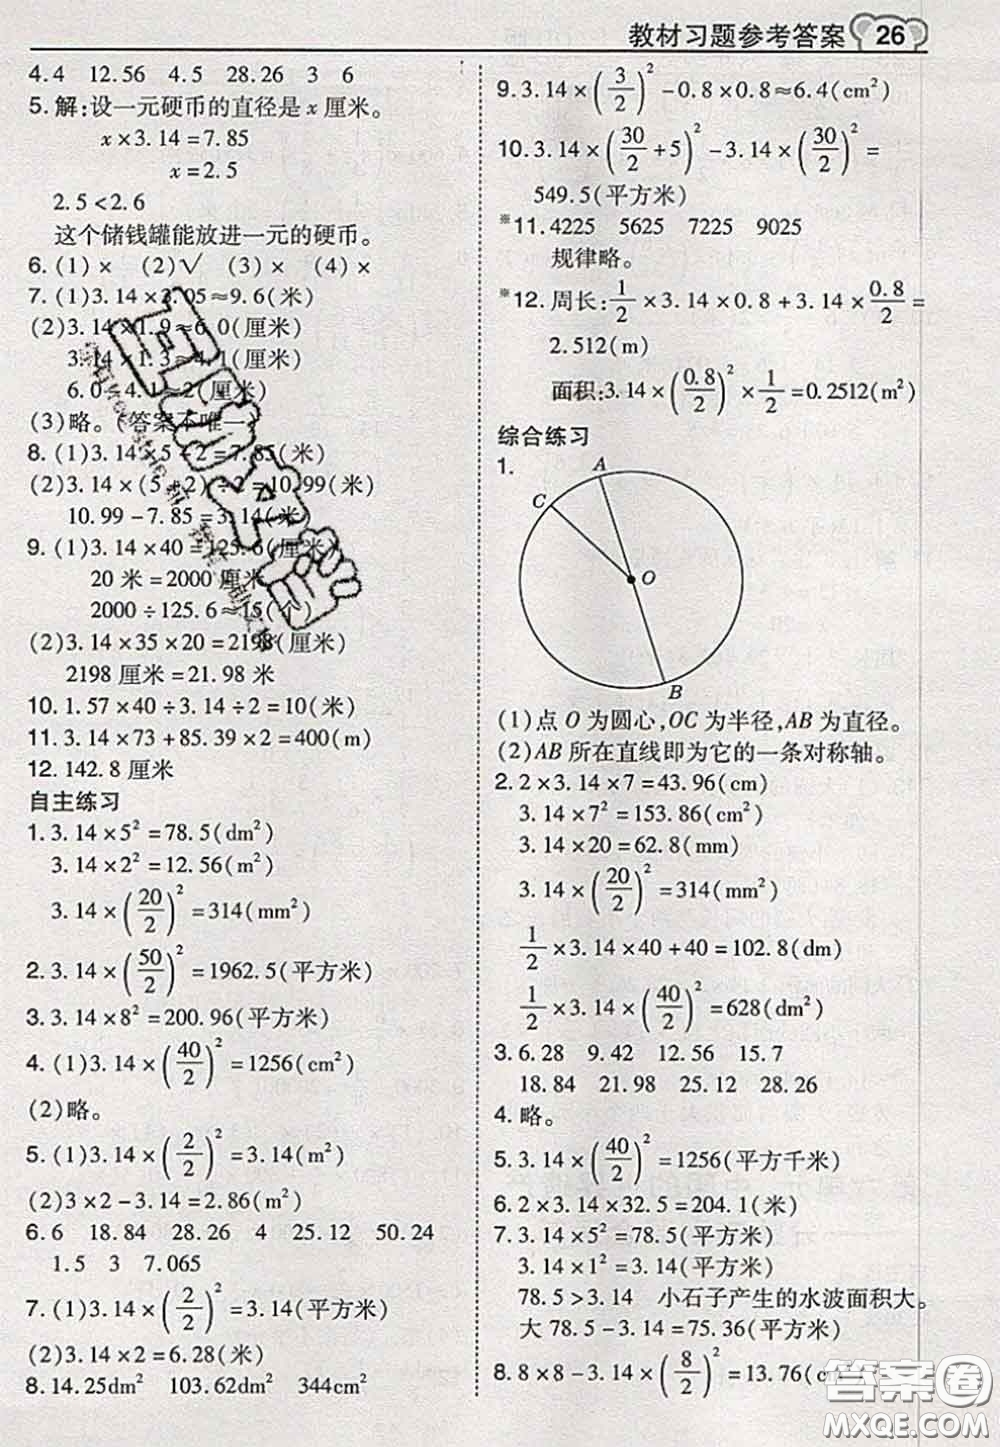 教材习题参考答案 26
4.4 12.56 4.5 28.26 3 6
5.解:设一元硬币的直径是x厘米。
x×3.14=7.85
x=2.5
2.5<2.6
这个储钱罐能放进一元的硬币。
6.(1)× (2)√ (3)× (4)×
7.(1)3.14×3.05≈9.6(米)
(2)3.14×1.9≈6.0(厘米)
3.14×1.3≈4.1(厘米)
6.0÷4.1≈2(厘米)
(3)略。(答案不唯一)
8.(1)3.14×5÷2=7.85(米)
(2)3.14×(5+2)÷2=10.99(米)
10.99-7.85=3.14(米)
9.(1)3.14×40=125.6(厘米)
20米=2000厘米
2000÷125.6≈15(个)
(2)3.14×35×20=2198(厘米)
2198厘米=21.98米
10.1.57×40÷3.14÷2=10(米)
11.3.14×73+85.39×2=400(m)
12.142.8厘米
自主练习
1.3.14×5²=78.5(dm²)
3.14×2²=12.56(m²)
3.14×(20/2)²=314(mm²)
2.3.14×(50/2)²=1962.5(平方米)
3.3.14×8²=200.96(平方米)
4.(1)3.14×(40/2)²=1256(cm²)
(2)略。
5.(1)3.14×(2/2)²=3.14(m²)
(2)3×2-3.14=2.86(m²)
6.6 18.84 28.26 4 25.12 50.24
1.5 3 7.065
7.(1)3.14×(2/2)²=3.14(平方米)
(2)3.14×2=6.28(米)
8.14.25dm² 103.62dm² 344cm²
9.3.14×(3/2)²-0.8×0.8≈6.4(cm²)
10.3.14×(30/2+5)²-3.14×(30/2)²=
549.5(平方米)
※11.4225 5625 7225 9025
规律略。
※12.周长:1/2×3.14×0.8+3.14×0.8/2=
2.512(m)
面积:3.14×(0.8/2)²×1/2=0.2512(m²)
综合练习
1.
A
C
O
B
(1)点O为圆心,OC为半径,AB为直径。
(2)AB所在直线即为它的一条对称轴。
2.2×3.14×7=43.96(cm)
3.14×7²=153.86(cm²)
3.14×20=62.8(mm)
3.14×(20/2)²=314(mm²)
1/2×3.14×40+40=102.8(dm)
1/2×3.14×(40/2)²=628(dm²)
3.6.28 9.42 12.56 15.7
18.84 21.98 25.12 28.26
4.略。
5.3.14×(40/2)²=1256(平方千米)
6.2×3.14×32.5=204.1(米)
7.3.14×5²=78.5(平方米)
3.14×1²=3.14(平方米)
78.5>3.14 小石子产生的水波面积大。
大78.5-3.14=75.36(平方米)
8.8×8-3.14×(8/2)²=13.76(cm²)
答案圈
MXQE.COM